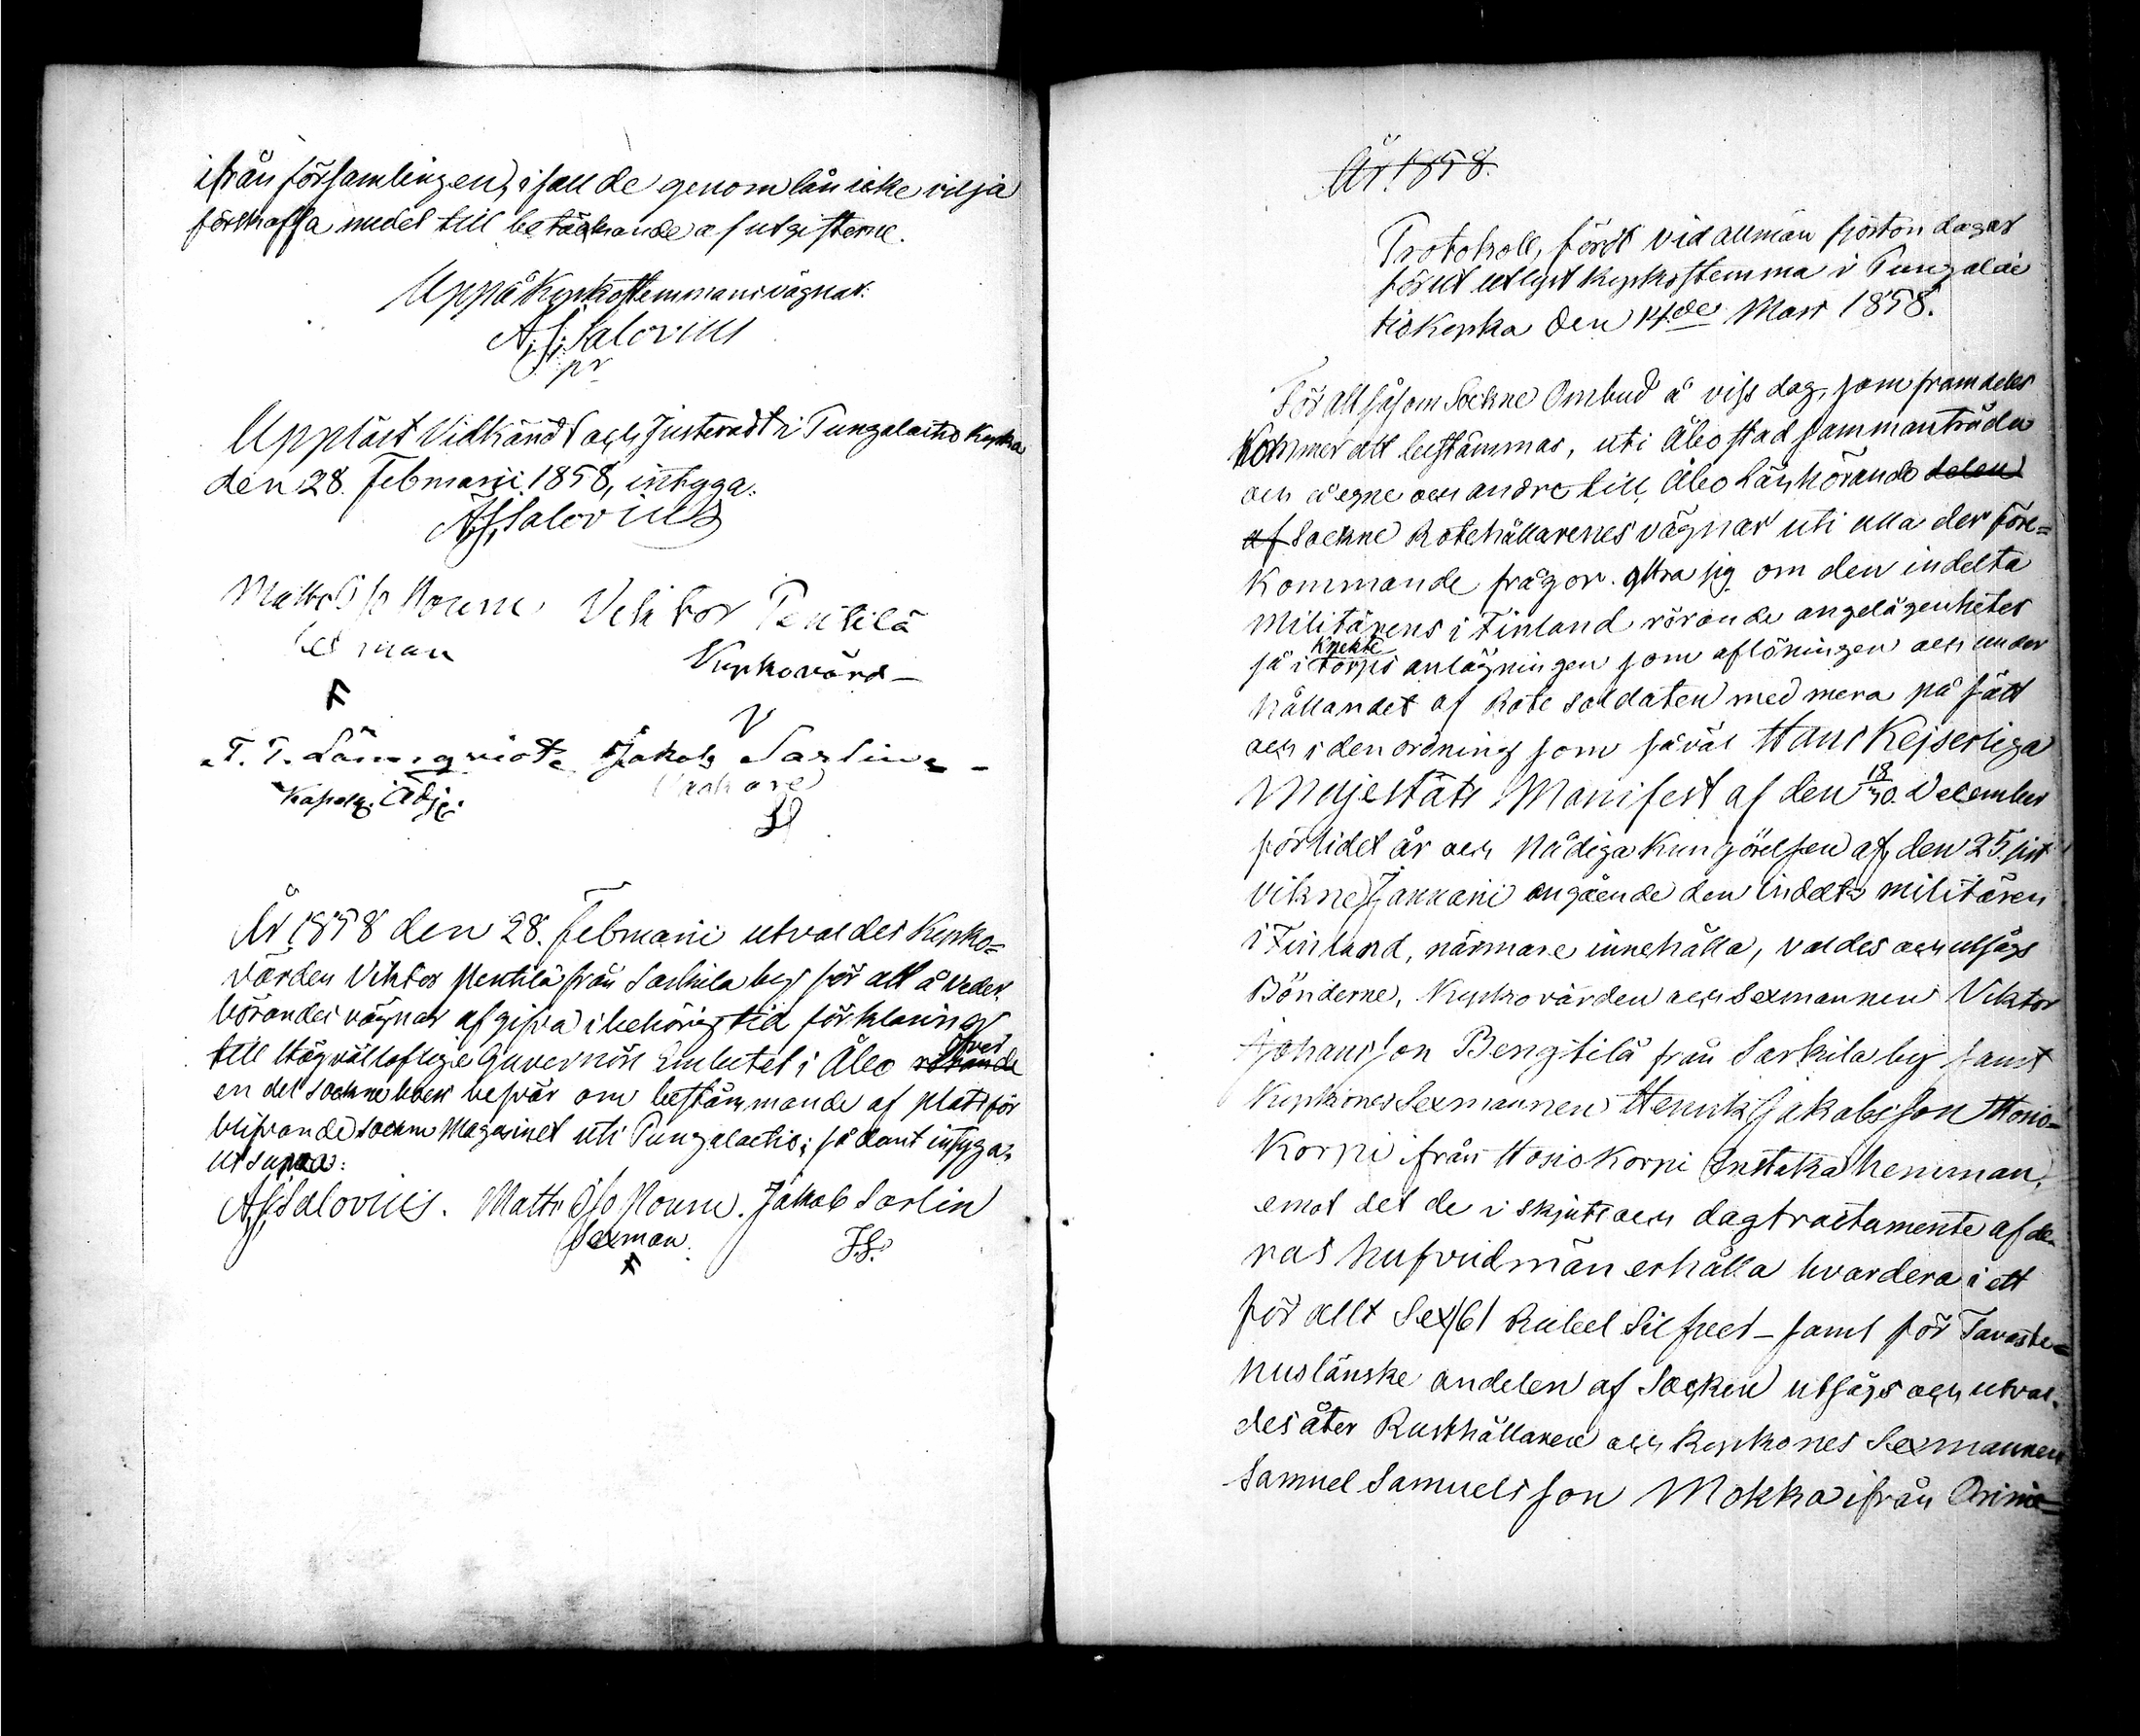 ifrån församlingen, i fall de genom lån icke vilja
förskaffa medel till betäckande af utgifterne.
Uppå Kyrkostemmans vägnar:
A. F. Salovius
pr
Uppläst Vidkändt och Justeradt i Pungalaitio Kyrka
den 28. Februarii 1858, intyga:
A. F. Salovius
Matts
Viktor Pentilä
Sexman
Kyrkovärd
T. T. Lönnqvist Jakob Sarlin
Kapells. Adj:
År 1858 den 28. Februarii utvaldes Kyrko=
värden Viktor Pentilä från Sarkila by för att å veder
börandes vägnar afgifva i behörig tid förklaring
till Högvälloflige Guvernörs Embetet i Åbo rörande öfver
en del Sockneboers besvär om bestämmande af plats för
blifvande Sockne Magasinet uti Pungalaitio; sådant intyga
ut supra:
A. F. Salovius. Matts Jakob Sarlin
Sexman. J.S.
År 1858.
Protokoll, fördt vid allmän fjorton dagar
förut utlyst Kyrkostemma i Pungalai
tio Kyrka den 14de Mars 1858.
För att såsom Sockne Ombud å viss dag, som framdeles
kommer att bestämmas, uti Åbo stad sammanträda
och å egne och andre till Åbo Län hörande delen
af Sockne Rotehållarenes vägnar uti alla der före=
kommande frågor yttra sig om den indelta
Militärens i Finland rörande angelägenheter
så i Knekte torps anläggningen som aflöningen och under
hållandet af Rote soldaten med mera på sätt
och i den ordning som såväl Hans Kejserliga
Majestäts Manifest af den 18/30. December
förlidet år och Nådiga Kungörelsen af den 25. sist
vikne Januarii angående den indelta militären
i Finland, närmare innehålla, valdes och utsågs
Bönderne, Kyrkovärden och Sexmannen Viktor
Johansson Bengtilä från Sarkila by samt
Kyrkones Sexmannen Henrik Jakobsson Hosio=
Korpi ifrån Hosiokorpi Enstaka hemman,
emot det de i skjuts och dagtractamente af de=
ras hufvudmän erhålla hvardera i ett
för allt Sex /6/ Rubel Silfver – samt för Tavaste=
huslänske andelen af Socken utsågs och utval
des åter Rusthållaren och Kyrkones Sexmannen
Samuel Samuelsson Mokka ifrån